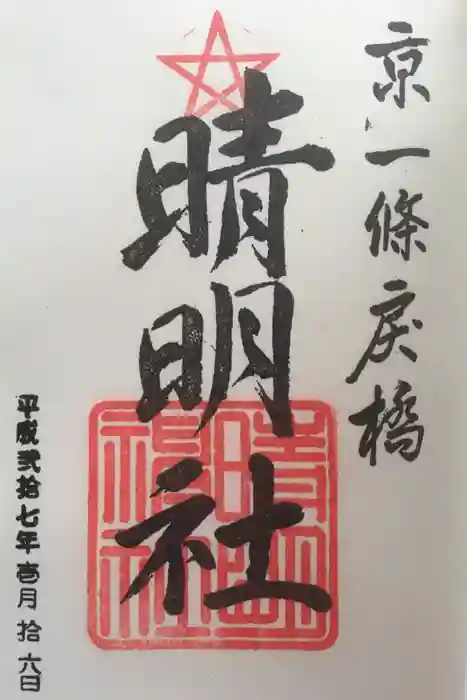 京一條戻橋
晴明社
晴明神社
平成弐拾七年壱月拾六日